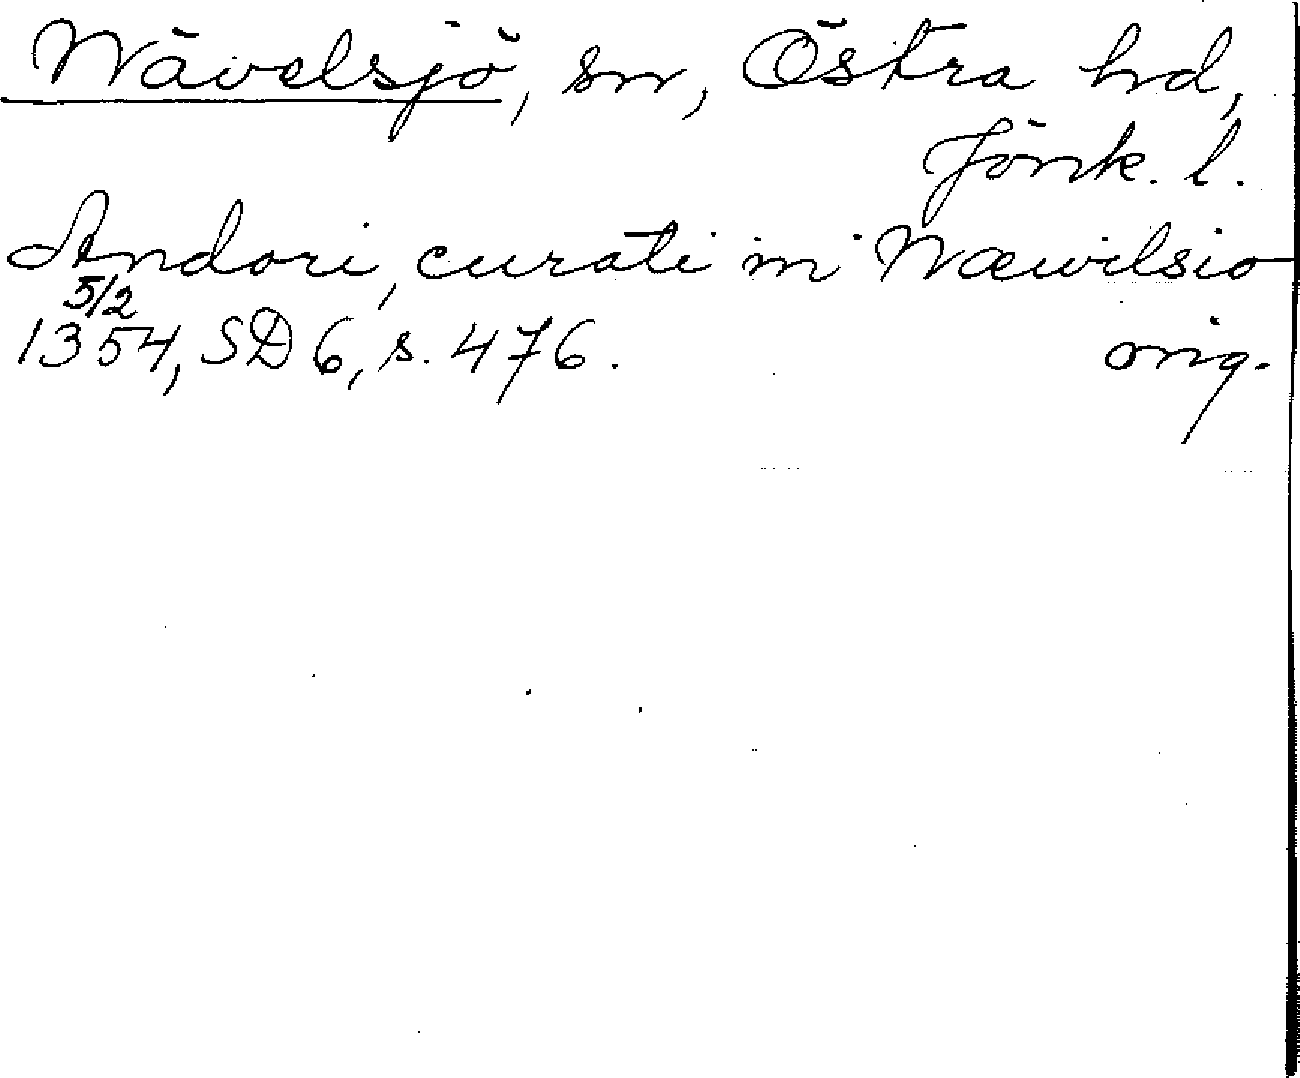 Nävelsjö, sn, Östra hd,
Jönk. l.
Andori, curati in Næwilsio
5/2
1354, SD 6, s. 476. orig.